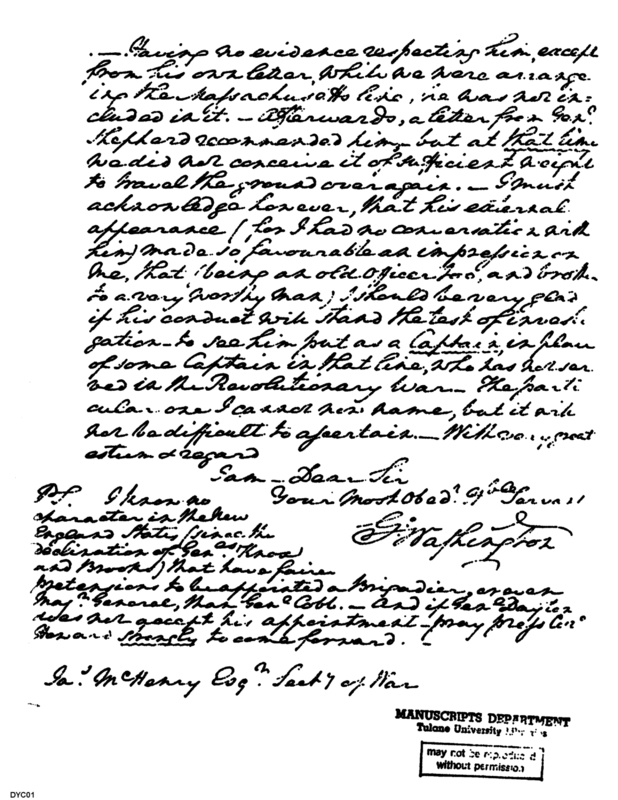 . — Having no evidence respecting him, except
from his own letter, while we were arrange
ing the Massachusetts line, he was not in=
cluded in it. — Afterwards, a letter from Gen.
Shepherd recommended him, but at that time
we did not conceive it of sufficient weight
to travel the ground over again. — I must
acknowledge however, that his external
appearance (for I had no conversation with
him) made so favourable an impression on
me, that (being an old Officer too, and broth.
to a very worthy man) I should be very glad
if his conduct will stand the test of investi-
gation — to see him put as a Captain, in place
of some Captain in that line, who has not ser
ved in the Revolutionary War — The parti
cular one I cannot now name, but it will
not be difficult to ascertain. — With very great
esteem & regard
I am — Dear Sir
Your Most Obed. H'ble Servant
Go Washington
PS. I know no
character in the New
England States (since the
declination of Genls Knox
and Brooks) that have fairer
pretensions to be appointed a Brigadier, or even
Majr General, than Genl Cobb. — And if Genl Dayton
does not accept his appointment — pray press
Howard strongly to come forward. —
Jas McHenry Esqr. Secty of War
MANUSCRIPTS DEPARTMENT
Tulane University Libraries
may not be reproduced
without permission
DYC01